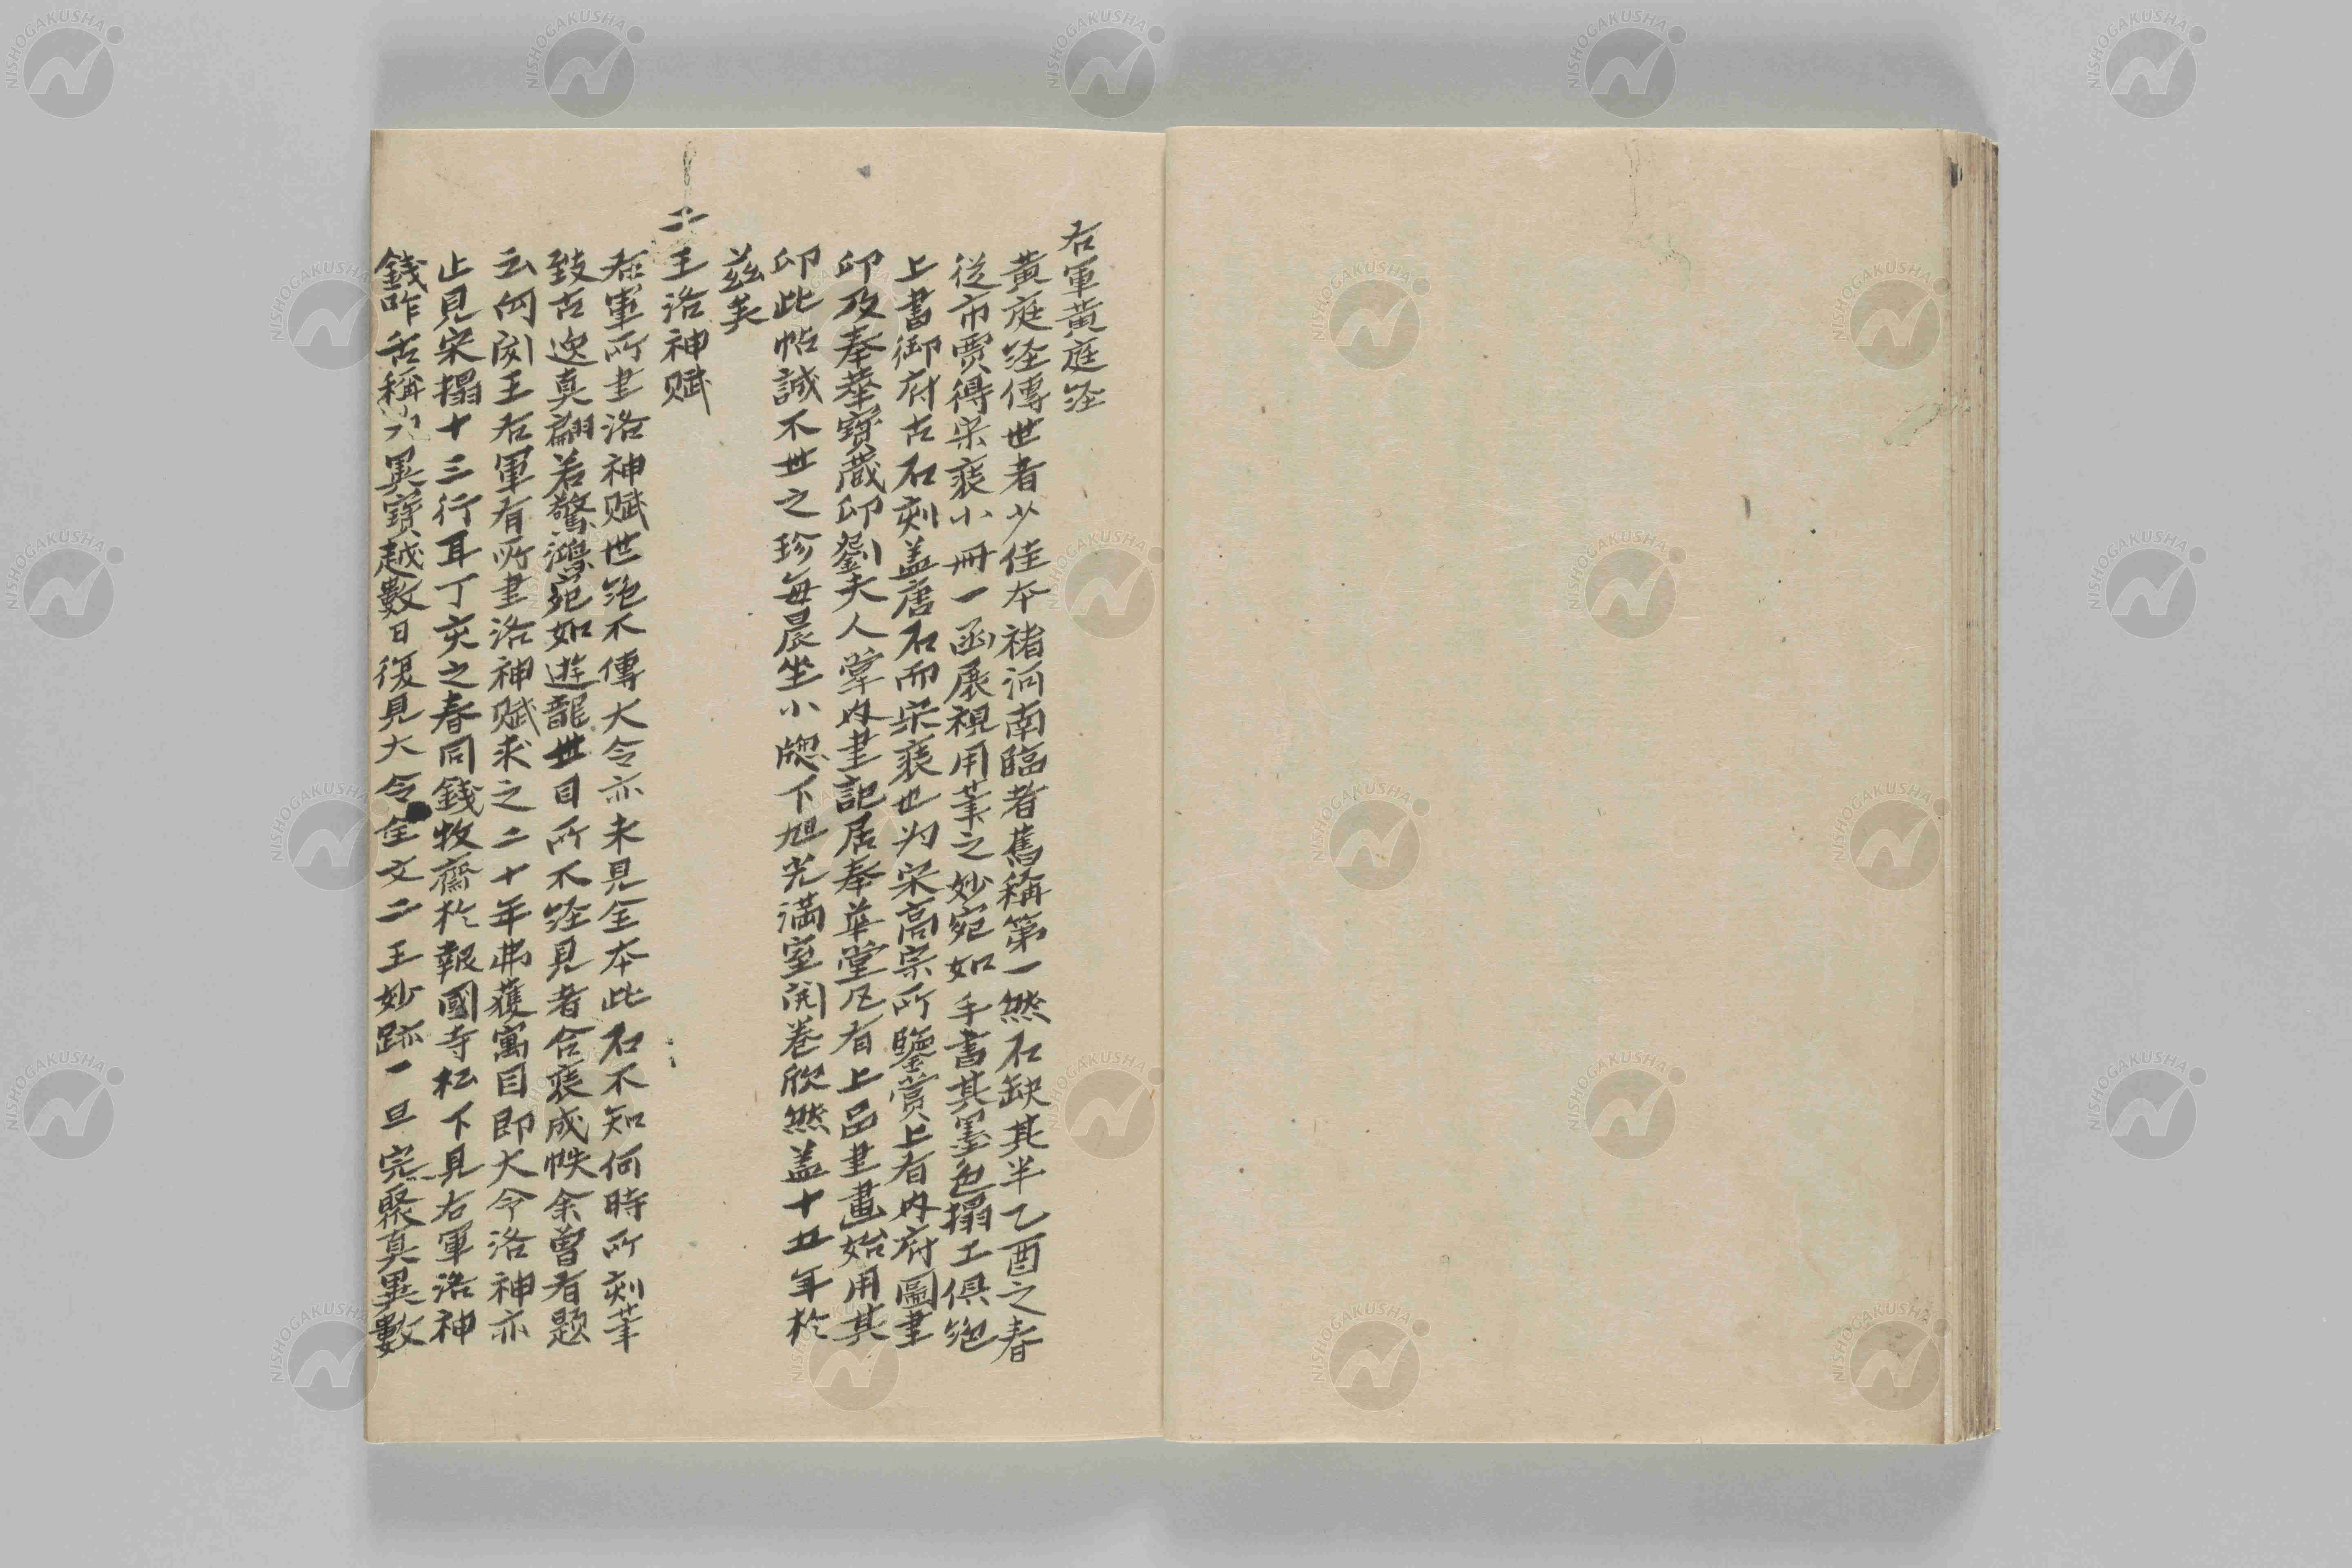 右軍黄庭経
黄庭経傳世者少佳本褚河南臨者舊稱第一然石缺其半乙酉之春
従市賈得宋裱小冊一函展視用筆之妙宛如手書其墨色搨工俱絶
上書御府古石刻盖唐石而宋裱也为宋高宗所鑒賞上有内府圖書
印及奉華寶蔵印劉夫人掌内書記居奉華堂凡有上品書畫始用其
印此帖誠不世之珍毎晨坐小牕下旭光満室開巻欣然盖十五年於
茲矣
二王洛神賦
右軍所書洛神賦世絶不傳大令亦未見全本此石不知何時所刻筆
致古逸真翩若驚鴻宛如遊龍世目所不経見者合裱成帙余曽有題
云向閲王右軍有所書洛神賦求之二十年弗獲寓目即大令洛神亦
止見宋搨十三行耳丁亥之春同錢牧齋於報國寺松下見右軍洛神
錢咋舌稱為異寶越數日復見大令全文二王妙跡一旦完聚真異數
NISHOGAKUSHA